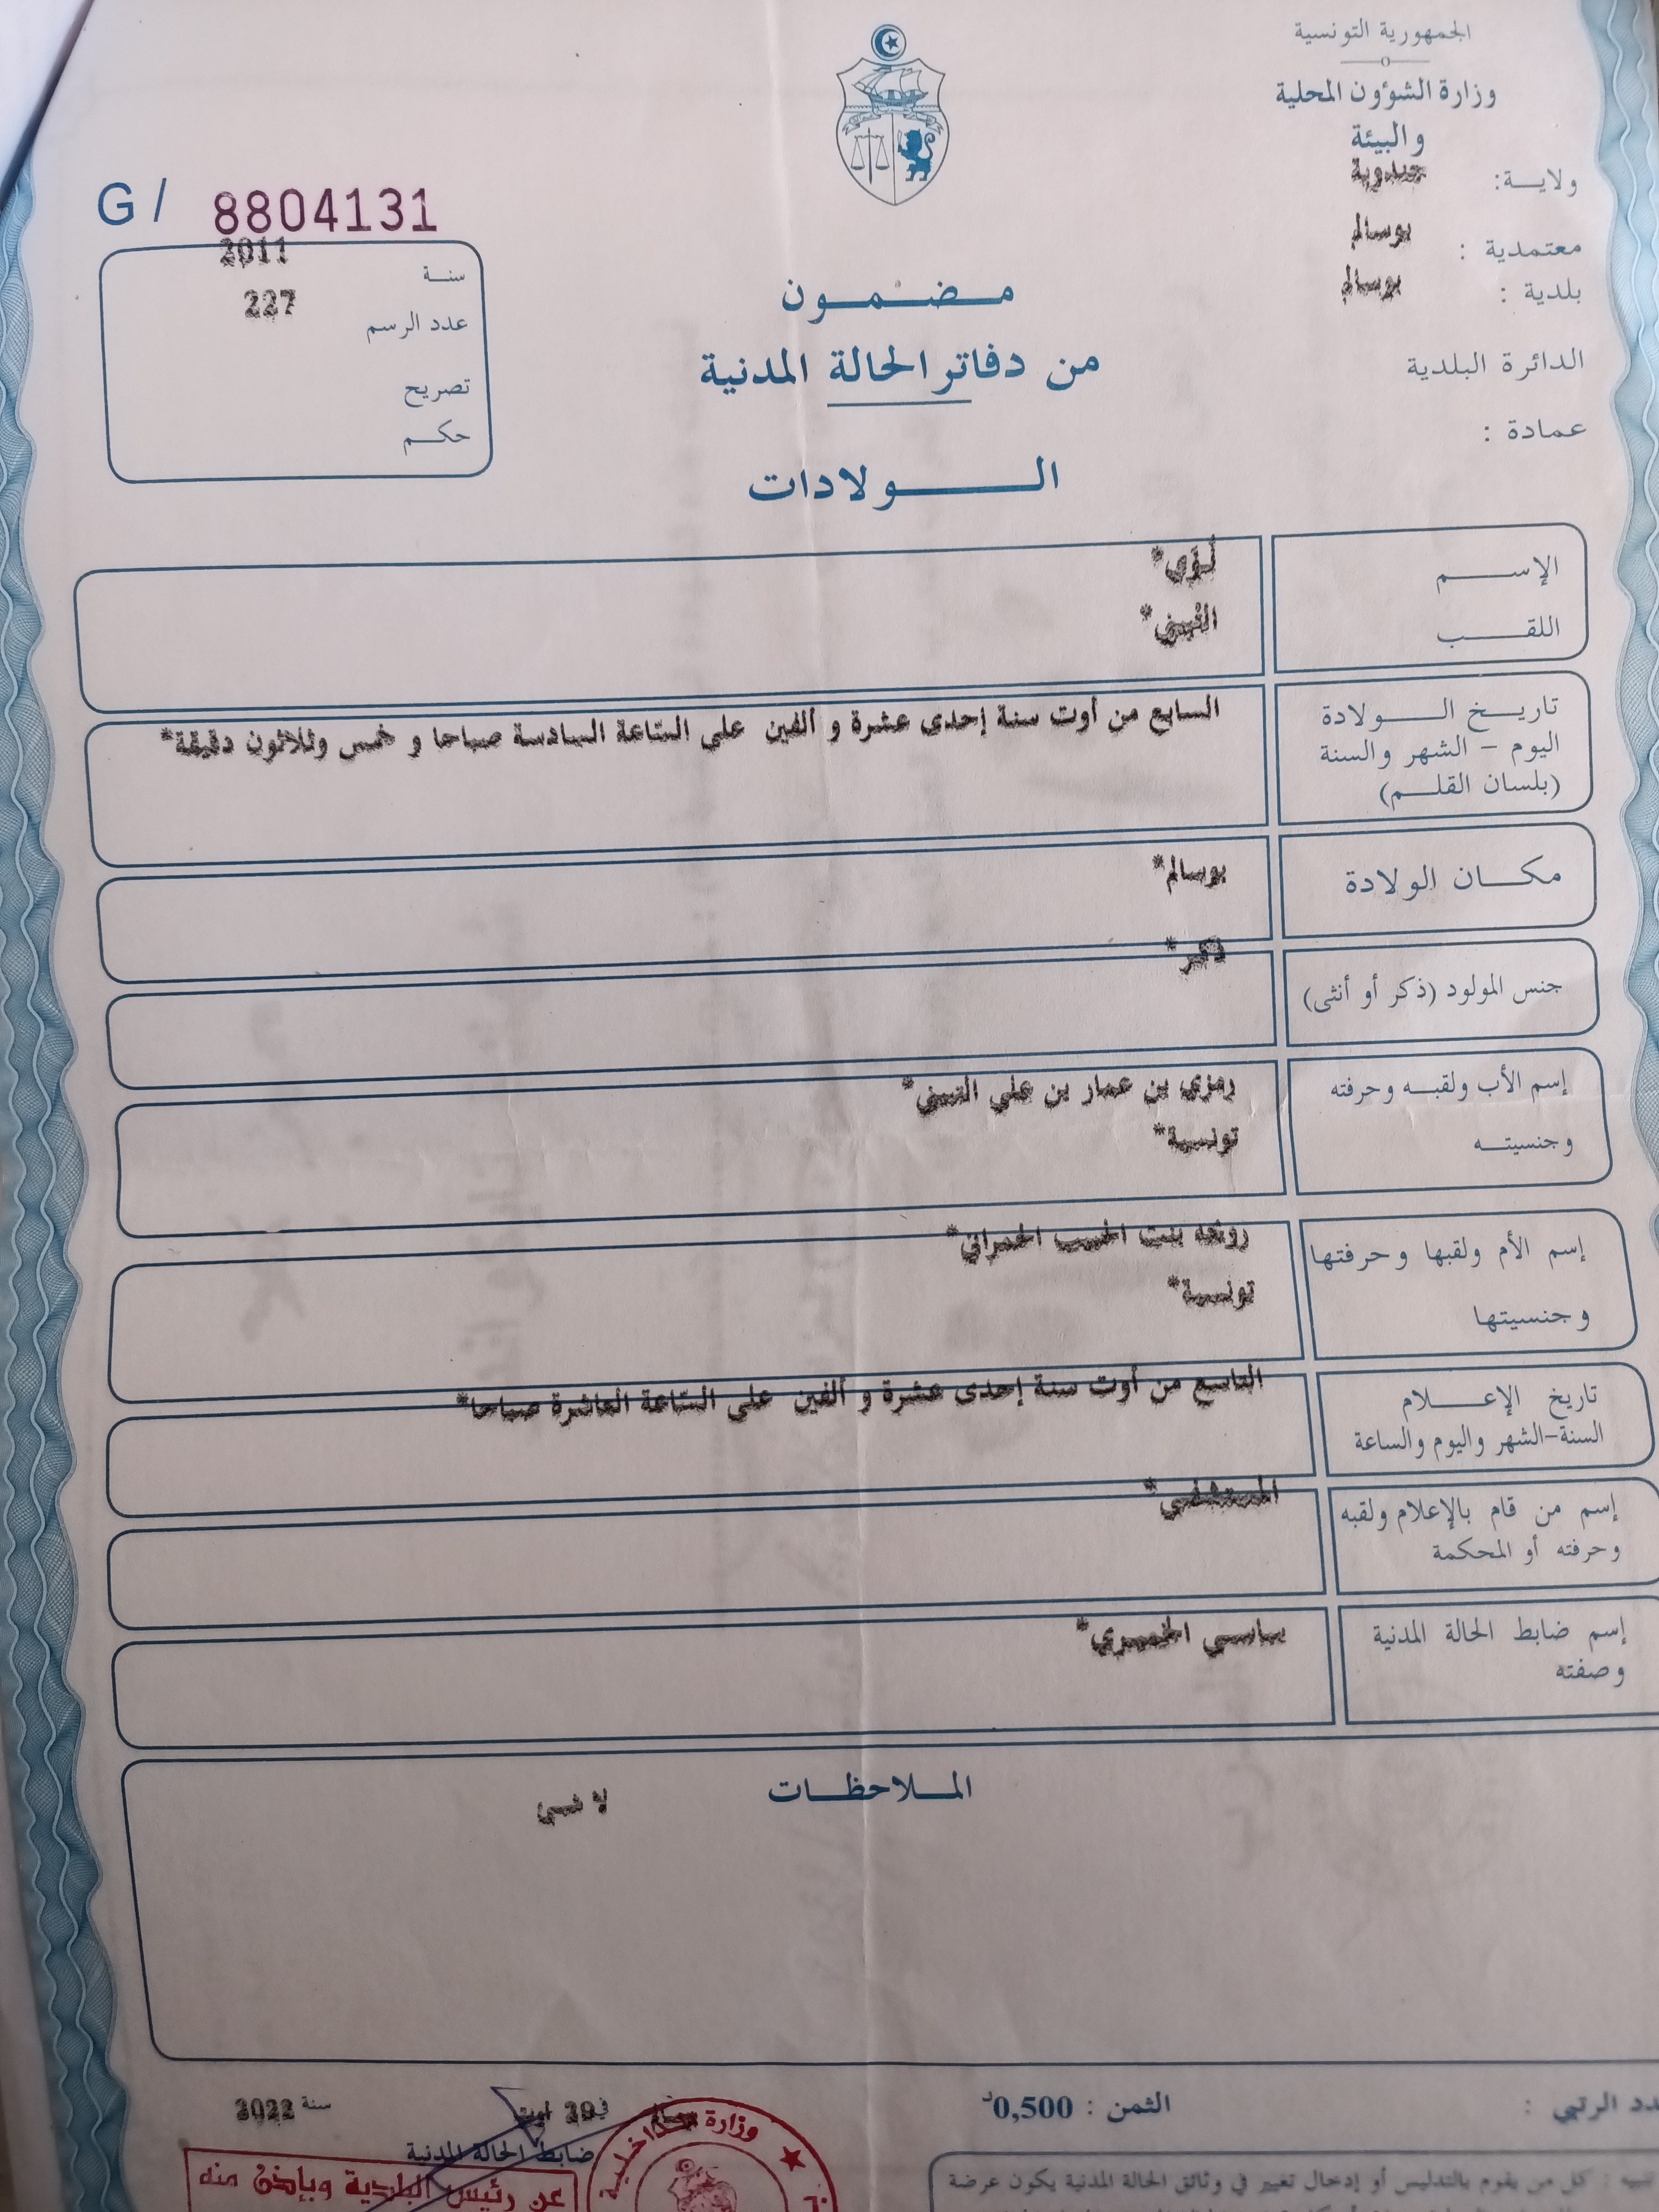 الجمهورية التونسية
وزارة الشؤون المحلية
والبيئة
ولاية: جندوبة
معتمدية : بوسالم
بلدية : بوسالم
الدائرة البلدية
عمادة :
G / 8804131
سنة 2011
عدد الرسم 227
تصريح
حكم
مضمون
من دفاتر الحالة المدنية
الولادات
الإسم لؤي*
اللقب
تاريخ الولادة
اليوم - الشهر والسنة
(بلسان القلم)
السابع من أوت سنة إحدى عشرة و ألفين على الساعة السادسة صباحا و خمس وثلاثون دقيقة*
مكان الولادة بوسالم*
جنس المولود (ذكر أو أنثى) ذكر*
إسم الأب ولقبه وحرفته رمزي بن عمار بن علي
وجنسيته تونسية*
إسم الأم ولقبها وحرفتها بنت الحبيب الحمراني*
وجنسيتها تونسية*
تاريخ الإعلام
السنة-الشهر واليوم والساعة
التاسع من أوت سنة إحدى عشرة و ألفين على الساعة العاشرة صباحا*
إسم من قام بالإعلام ولقبه المستشفى*
وحرفته أو المحكمة
إسم ضابط الحالة المدنية ساسي الخميري*
وصفته
الملاحظات
لا شيء
الثمن : 0,500د
في 29 أوت سنة 2022
ضابط الحالة المدنية
عن رئيس البلدية وبإذن منه
وزارة الداخلية
تنبيه : كل من يقوم بالتدليس أو إدخال تغيير في وثائق الحالة المدنية يكون عرضة